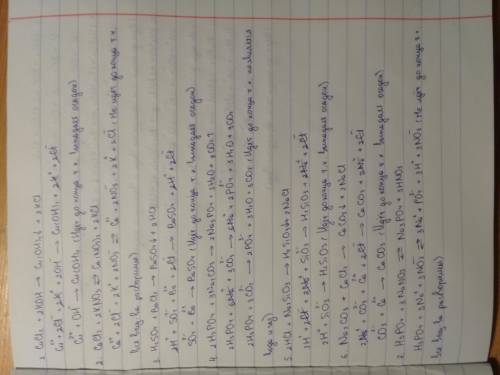 1. CuCl₂ + 2KOH → Cu(OH)₂↓ + 2KCl
Cu²⁺ + 2Cl⁻ + 2K⁺ + 2OH⁻ → Cu(OH)₂ + 2K⁺ + 2Cl⁻
Cu²⁺ + OH⁻ → Cu(OH)₂ (Идет до конца т.к. выпадает осадок)
2. CaCl₂ + 2KNO₃ ⇄ Ca(NO₃)₂ + 2KCl
Ca²⁺ + 2Cl⁻ + 2K⁺ + 2NO₃⁻ ⇄ Ca²⁺ + 2NO₃⁻ + 2K⁺ + 2Cl⁻ (Не идет до конца т.к.
все в-ва растворимы)
3. H₂SO₄ + BaCl₂ → BaSO₄↓ + 2HCl
2H⁺ + SO₄²⁻ + Ba²⁺ + 2Cl⁻ → BaSO₄ + 2H⁺ + 2Cl⁻
SO₄²⁻ + Ba²⁺ → BaSO₄ (Идет до конца т.к. выпадает осадок)
4. 2H₃PO₄ + 3Na₂CO₃ → 2Na₃PO₄ + 3H₂O + 3CO₂↑
2H₃PO₄ + 3CO₃ → 2PO₄ + 3H₂O + 3CO₂ (Идет до конца т.к.
вода и газ)
5. 2HCl + Na₂SiO₃ → H₂SiO₃↓ + 2NaCl
2H⁺ + 2Cl⁻ + 2Na⁺ + SiO₃²⁻ → H₂SiO₃ + 2Na⁺ + 2Cl⁻
2H⁺ + SiO₃²⁻ → H₂SiO₃ (Идет до конца т.к. выпадает осадок)
6. Na₂CO₃ + CaCl₂ → CaCO₃↓ + 2NaCl
2Na⁺ + CO₃²⁻ + Ca²⁺ + 2Cl⁻ → CaCO₃ + 2Na⁺ + 2Cl⁻
CO₃²⁻ + Ca²⁺ → CaCO₃ (Идет до конца т.к. выпадает осадок)
H₃PO₄ + 3NaNO₃ ⇄ Na₃PO₄ + 3HNO₃
H₃PO₄ + 3Na⁺ + 3NO₃⁻ ⇄ 3Na⁺ + PO₄ + 3H⁺ + 3NO₃⁻ (Не идет до конца т.к.
все в-ва растворимы)